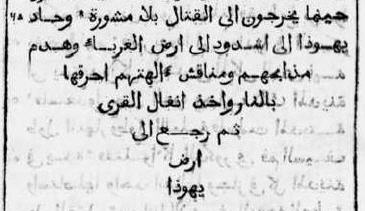 حينما يخرجون الى القتال بلا مشورة * وحاد ٦٨
يهوذا الى اشدود الى ارض الغرباء وهدم
مذابحهم ومناقش الهتهم احرقها
بالنار واخذ انفال القرى
ثم رجع الى
ارض
يهوذا